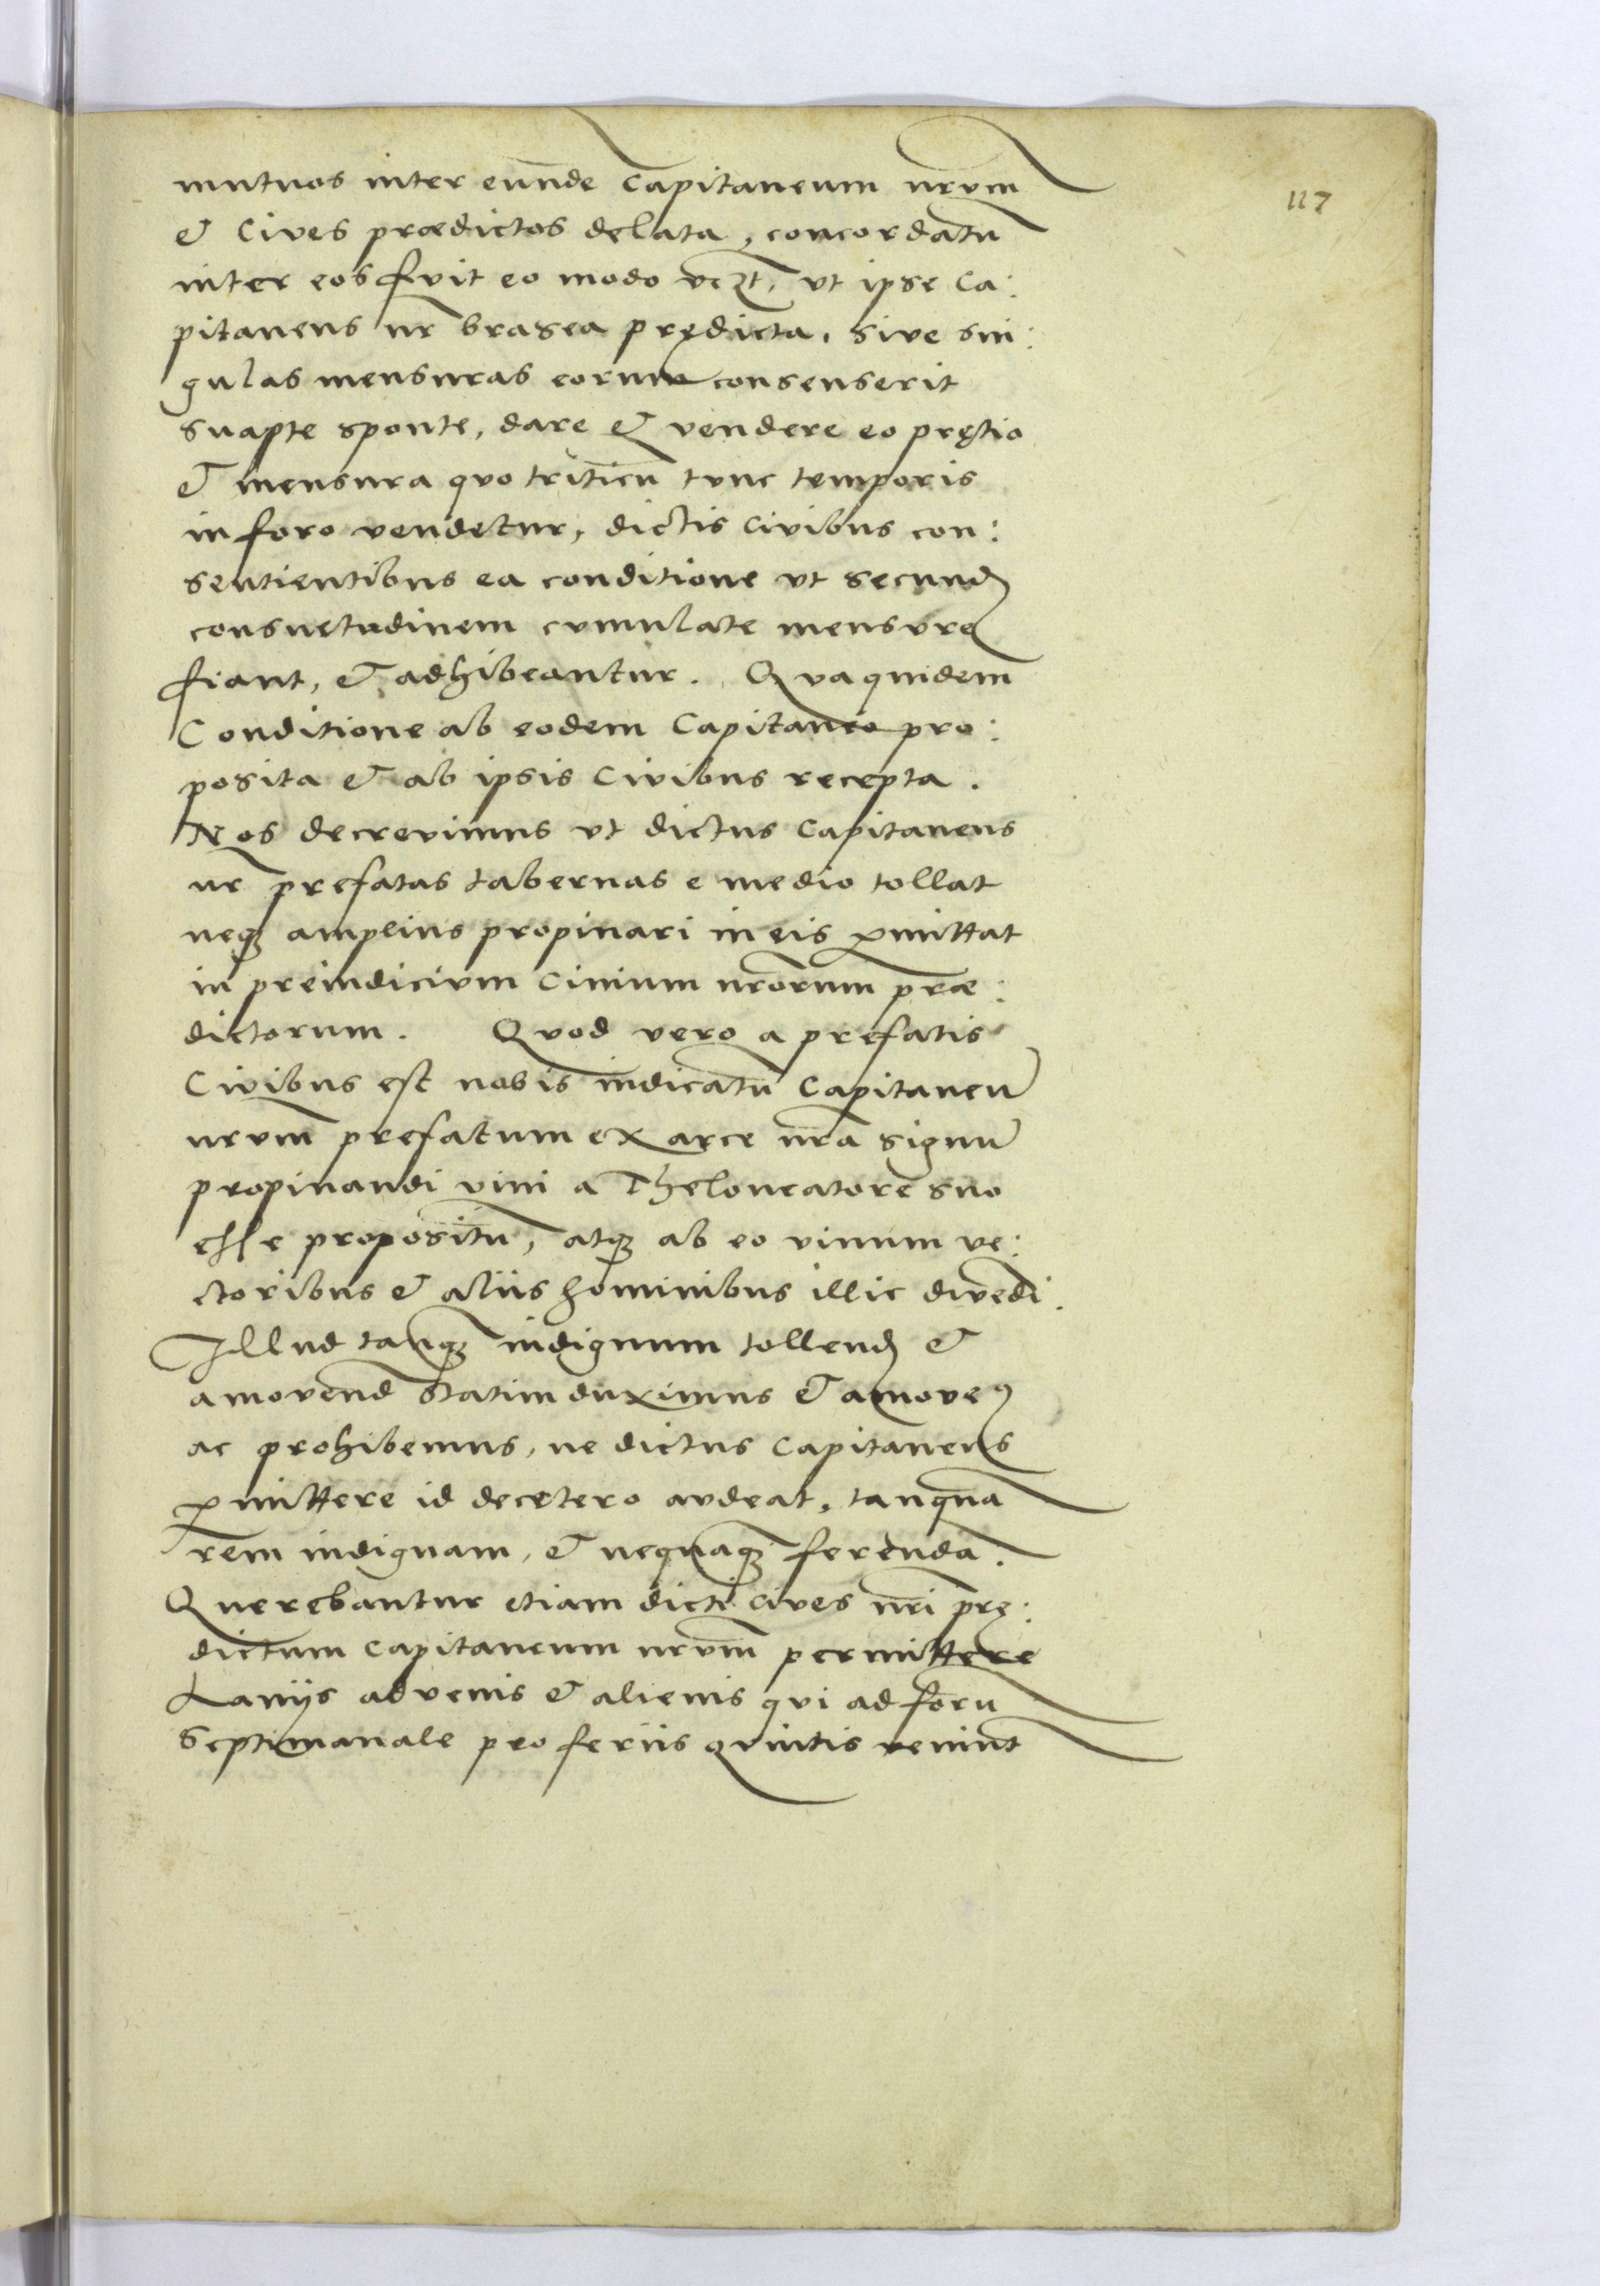 117
mutuos inter eunde Capitaneum nrvm
& Cives prædictos delata, concordatu
inter eos fvit eo modo vczt, vt ipse Ca:
pitaneus nr brasea prędicta, sive sin:
gulas mensuras eorum consenserit
suapte sponte, dare & vendere eo pręstio
& mensura qvo triticu tvnc temporis
in foro vendetur, dictis Civibus con:
sentientibus ea conditione vt secund
consuetudinem cvmulate mensvre
fiant, & adhibeantur. Qva quidem
Conditione ab eodem Capitaneo pro:
posita & ab ipsis Civibus recepta.
Nos decrevimus vt dictus Capitaneus
nr prefatas tabernas e medio tollat
neq; amplius propinari in eis pmittat
in preiudicivm Civium nrorum præ:
dictorum. Qvod vero a prefatis
Civibus est nobis indicatu Capitaneu
nrvm prefatum ex arce nra signu
propinandi vini a Theloneatore suo
esse propositu, atq; ab eo vinum ve:
ctoribus & aliis hominibus illic divedi.
Illud tanq; indignum tollend &
amovend statim duximus & amove9
ac prohibemus, ne dictus Capitaneus
pmittere id decetero avdeat, tanqua
rem indignam, & nequaq; ferenda.
Querebantur etiam dicti Cives nri prę:
dictum Capitaneum nrvm permittere
Laniis advenis & alienis qvi ad foru
Septimanale pro feriis qvintis veniunt